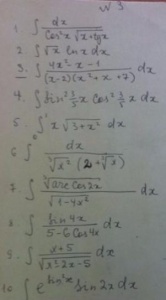 № 3
1. ∫ dx / (cos²x √(x+tgx))
2. ∫ √x ln x dx
3. ∫ (4x²-x-1) / ((x-2)(x²+x+7)) dx
4. ∫ sin² 3/5 x cos² 3/5 x dx
5. ∫₀¹ x √(3+x²) dx
6. ∫ dx /
7. ∫ √(arccos2x) / √(1-4x²) dx
8. ∫ sin4x / (5-6cos4x) dx
9. ∫ (x+5) / √(x²-2x-5) dx
10. ∫ e^(sin²x) sin 2x dx